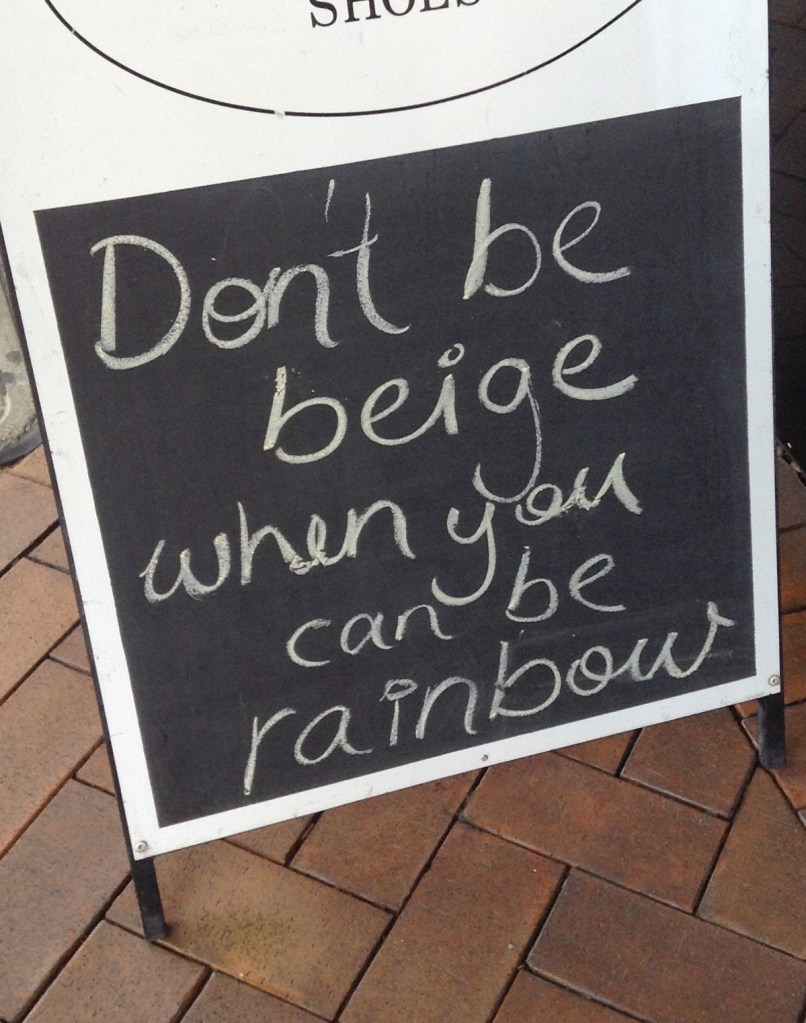 SHOES
Don't be
beige
when you
can be
rainbow